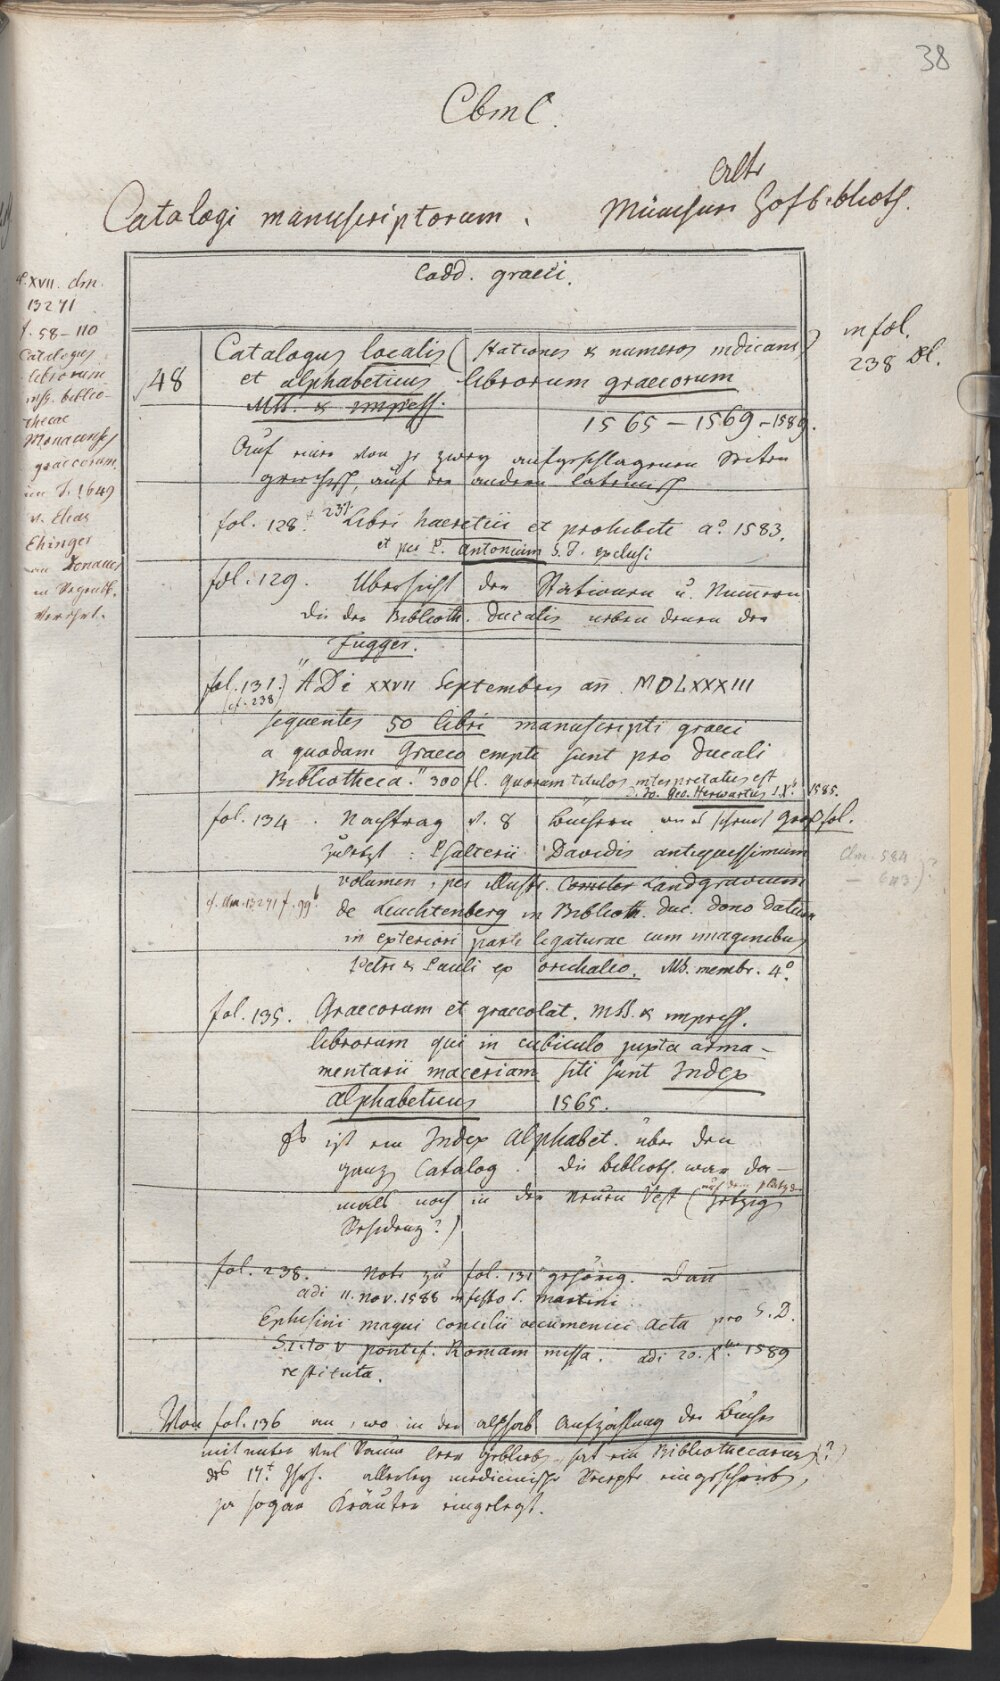 38
CbmC.
Catalogi manuscriptorum. Alte Münchner Hofbiblioth.
Codd. graeci.
cf. XVII. clm.
13271
f. 58-110
Catalogus
librorum
mss. biblio-
thecae
Monacensis
graecorum
im J. 1649
v. Elias
Ehinger
verehrt.
in fol.
238 Bl.
48
Catalogus localis (stationes & numeros indicans)
et alphabeticus librorum graecorum
MSS. & impress.
1565-1569-1589.
Auf einer von je zwey aufgeschlagenen Seiten
griechisch, auf der andern lateinisch
fol. 128. 237. Libri haeretici et prohibiti ao. 1583.
et per P. Antonium S. J. exclusi
fol. 129. Übersicht der Stationen u. Numern
die der Biblioth. Ducalis neben denen der
Fugger.
fol. 131. "ADi XXVII Septembris an. MDLXXXIII
(cf. 238)
sequentes 50 libri manuscripti graeci
a quodam Graeco empti sunt pro Ducali
Bibliotheca." 300 fl. quorum titulos interpretatus est
D. Jo. Geo. Herwartus 1585.
fol. 134. Nachtrag v. 8 Büchern
zuletzt: Psalterii Davidis antiquissimum
Clm. 584
643)
volumen, per illustr. Landgravium
cf. clm. 13271 f. 99b
de Leuchtenberg in Biblioth. Duc. dono datum
in exteriori parte ligaturae cum imaginibus
Petri & Pauli ex orichalco. MS. membr. 4o.
fol. 135. Graecorum et graecolat. MSS. & impress.
librorum qui in cubiculo juxta arma-
mentarii maceriam siti sunt Index
alphabeticus 1565.
Es ist ein Index alphabet. über den
ganzen Catalog. Die Biblioth. war da-
mals noch in der Neuen Vest (jetzigen
Residenz?)
fol. 238. Note zu fol. 131 gehörig. Dann
adi 11. Nov. 1588 in festo S. Martini
Ephesini magni concilii oecumenici Acta pro S. D.
Sixto V pontif. Romam missa. adi 20. Xbris 1589
restituta.
Von fol. 136 an, wo in der alphab Aufzählung der Bücher
mitunter viel Raum leer geblieben, hat ein Bibliothecarius (?)
des 17t. Jhrh. allerley medicinische Recepte eingeschrieben,
ja sogar Kräuter eingelegt.